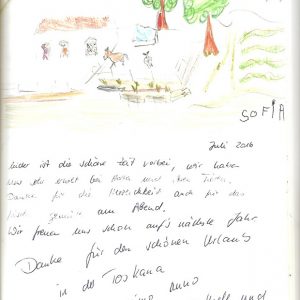 SOFIA
Juli 2016
leider ist die schöne Zeit vorbei, wir haben
uns sehr wohl bei und ihren Tieren.
Danke für die Herzlichkeit auch für das
Gemüse am Abend.
Wir freuen uns schon auf's nächste Jahr
Danke für den schönen Urlaub
in der Toskana
und